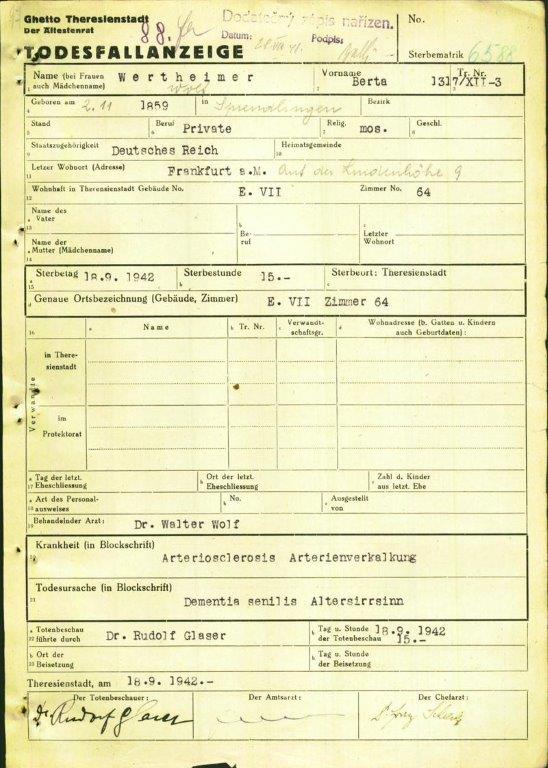 Ghetto Theresienstadt
Der Ältestenrat
88.
Dodatečný zápis nařízen.
Datum: Podpis:
No.
TODESFALLANZEIGE
Sterbematrik 6588
Name (bei Frauen auch Mädchenname) Wertheimer Vorname Berta Tr. Nr. 1317/XII-3
Geboren am 2.11 1859 in Sprendlingen Bezirk
Stand Beruf Private Relig. mos. Geschl.
Staatszugehörigkeit Deutsches Reich Heimatsgemeinde
Letzer Wohnort (Adresse) Frankfurt a.M. Auf der Lindenhöhe 9
Wohnhaft in Theresienstadt Gebäude No. E. VII Zimmer No. 64
Name des Vater Be-ruf Letzter Wohnort
Name der Mutter (Mädchenname)
Sterbetag 18.9. 1942 Sterbestunde 15.- Sterbeort: Theresienstadt
Genaue Ortsbezeichnung (Gebäude, Zimmer) E. VII Zimmer 64
Name Tr. Nr. Verwandt-schaftsgr. Wohnadresse (b. Gatten u. Kindern auch Geburtdaten):
Verwandte
in There-sienstadt
im Protektorat
Tag der letzt. Eheschliessung Ort der letzt. Eheschliessung Zahl d. Kinder aus letzt. Ehe
Art des Personal-ausweises No. Ausgestellt von
Behandelnder Arzt: Dr. Walter Wolf
Krankheit (in Blockschrift)
Arteriosclerosis Arterienverkalkung
Todesursache (in Blockschrift)
Dementia senilis Altersirrsinn
Totenbeschau führte durch Dr. Rudolf Glaser Tag u. Stunde der Totenbeschau 18.9. 1942 15.-
Ort der Beisetzung Tag u. Stunde der Beisetzung
Theresienstadt, am 18.9. 1942.-
Der Totenbeschauer: Der Amtsarzt: Der Chefarzt:
Dr Rudolf Glaser